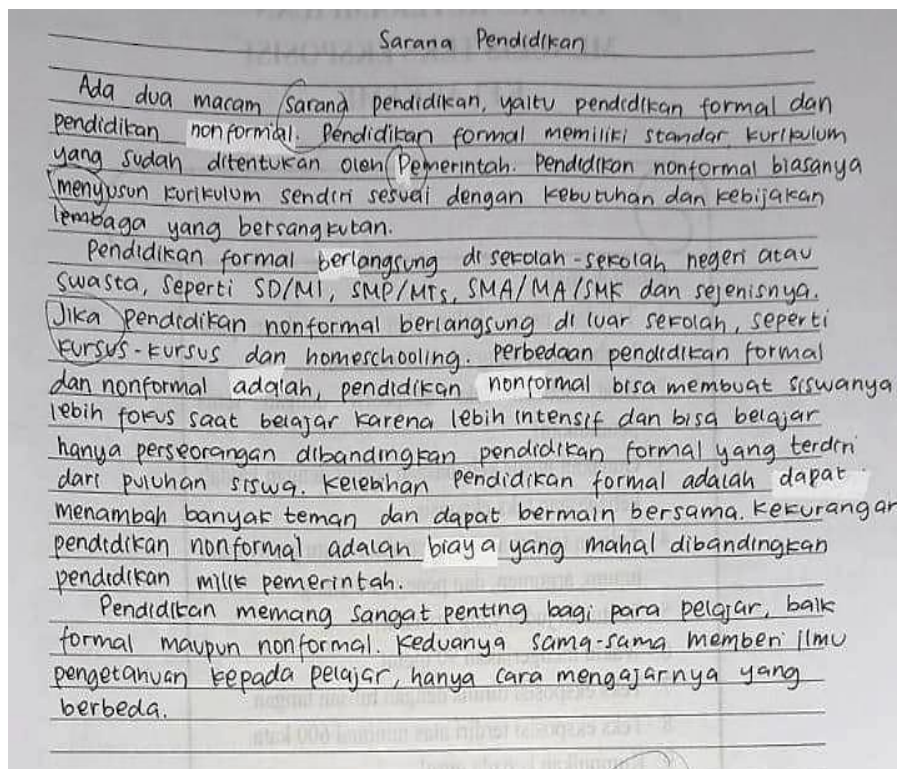 Sarana Pendidikan
Ada dua macam sarana pendidikan, yaitu pendidikan formal dan
pendidikan nonformal. Pendidikan formal memiliki standar kurikulum
yang sudah ditentukan oleh Pemerintah. Pendidikan nonformal biasanya
menyusun kurikulum sendiri sesuai dengan kebutuhan dan kebijakan
lembaga yang bersangkutan.
Pendidikan formal berlangsung di sekolah-sekolah negeri atau
swasta, seperti SD/MI, SMP/MTs, SMA/MA/SMK dan sejenisnya.
Jika pendidikan nonformal berlangsung di luar sekolah, seperti
kursus-kursus dan homeschooling. Perbedaan pendidikan formal
dan nonformal adalah, pendidikan nonformal bisa membuat siswanya
lebih fokus saat belajar karena lebih intensif dan bisa belajar
hanya perseorangan dibandingkan pendidikan formal yang terdiri
dari puluhan siswa. Kelebihan pendidikan formal adalah dapat
menambah banyak teman dan dapat bermain bersama. Kekurangan
pendidikan nonformal adalah biaya yang mahal dibandingkan
pendidikan milik pemerintah.
Pendidikan memang sangat penting bagi para pelajar, baik
formal maupun nonformal. Keduanya sama-sama memberi ilmu
pengetahuan kepada pelajar, hanya cara mengajarnya yang
berbeda.